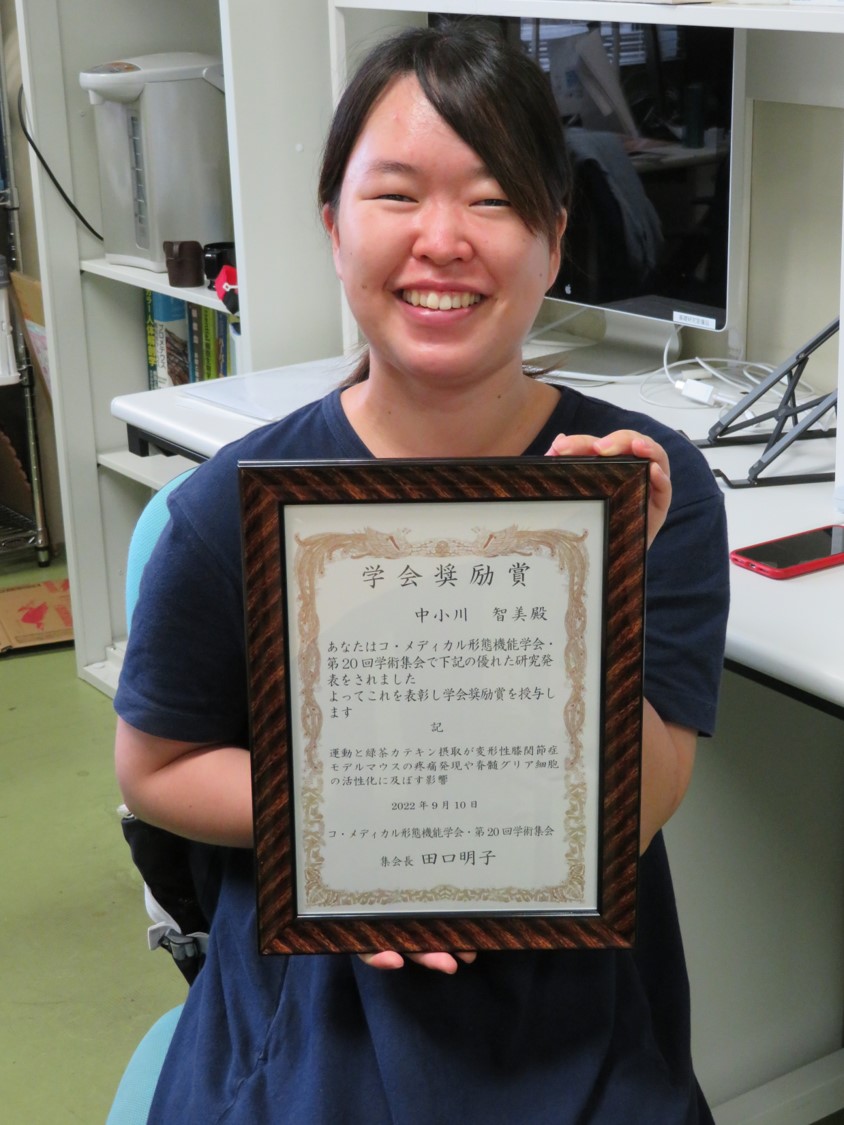 学会奨励賞
中小川 智美殿
あなたはコ・メディカル形態機能学会・
第20回学術集会で下記の優れた研究発
表をされました
よってこれを表彰し学会奨励賞を授与し
ます
記
運動と緑茶カテキン摂取が変形性膝関節症
モデルマウスの疼痛発現や脊髄グリア細胞
の活性化に及ぼす影響
2022年9月10日
コ・メディカル形態機能学会・第20回学術集会
集会長 田口明子
カラー人体解剖学